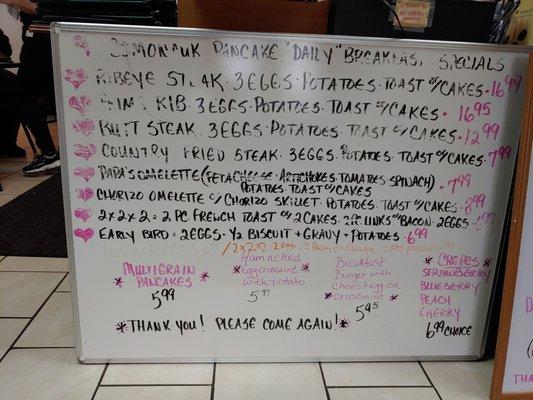 PANCAKE "DAILY" BREAKFAST SPECIALS
RIBEYE STEAK · 3 EGGS · POTATOES · TOAST OR/CAKES · 16.99
RIB · 3 EGGS · POTATOES · TOAST OR/CAKES · 16.95
BUTT STEAK 3 EGGS · POTATOES TOAST OR/CAKES · 12.99
COUNTRY FRIED STEAK · 3 EGGS · POTATOES · TOAST OR/CAKES · 7.99
PAPA'S OMELETTE (FETA CHEESE · ARTICHOKES TOMATOES SPINACH) · 7.99
POTATOES TOAST OR/CAKES
CHORIZO OMELETTE OR CHORIZO SKILLET · POTATOES · TOAST OR/CAKES
2x2x2 = 2 PC. FRENCH TOAST OR 2 CAKES · 2 PC. LINKS OR BACON · 2 EGGS
EARLY BIRD = 2 EGGS · ½ BISCUIT + GRAVY + POTATOES · 6.99
MULTIGRAIN PANCAKES
5.99
* Ham n cked *
Egg croissaint
with potato
5.99
Breakfast
Burger with
cheese egg on
* croissaint *
5.95
* CREPES *
STRAWBERRY
BLUEBERRY
PEACH
CHERRY
6.99 CHOICE
* THANK YOU! PLEASE COME AGAIN! *